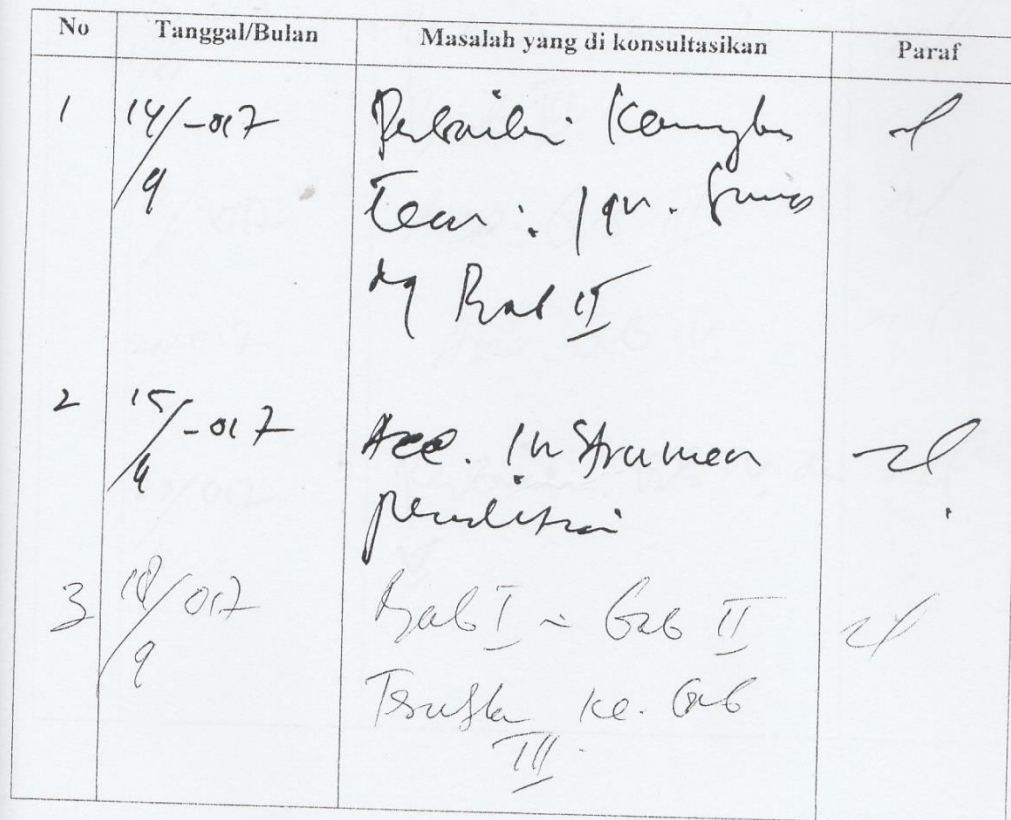 No Tanggal/Bulan Masalah yang di konsultasikan Paraf
1 14/9-017 Perbaiki Kerangka
Teori :
dg Bab II
2 15/9-017 Acc. Instrumen
penelitian
3 18/9 017 Bab I - Bab II
Teruskan ke. Bab
III.